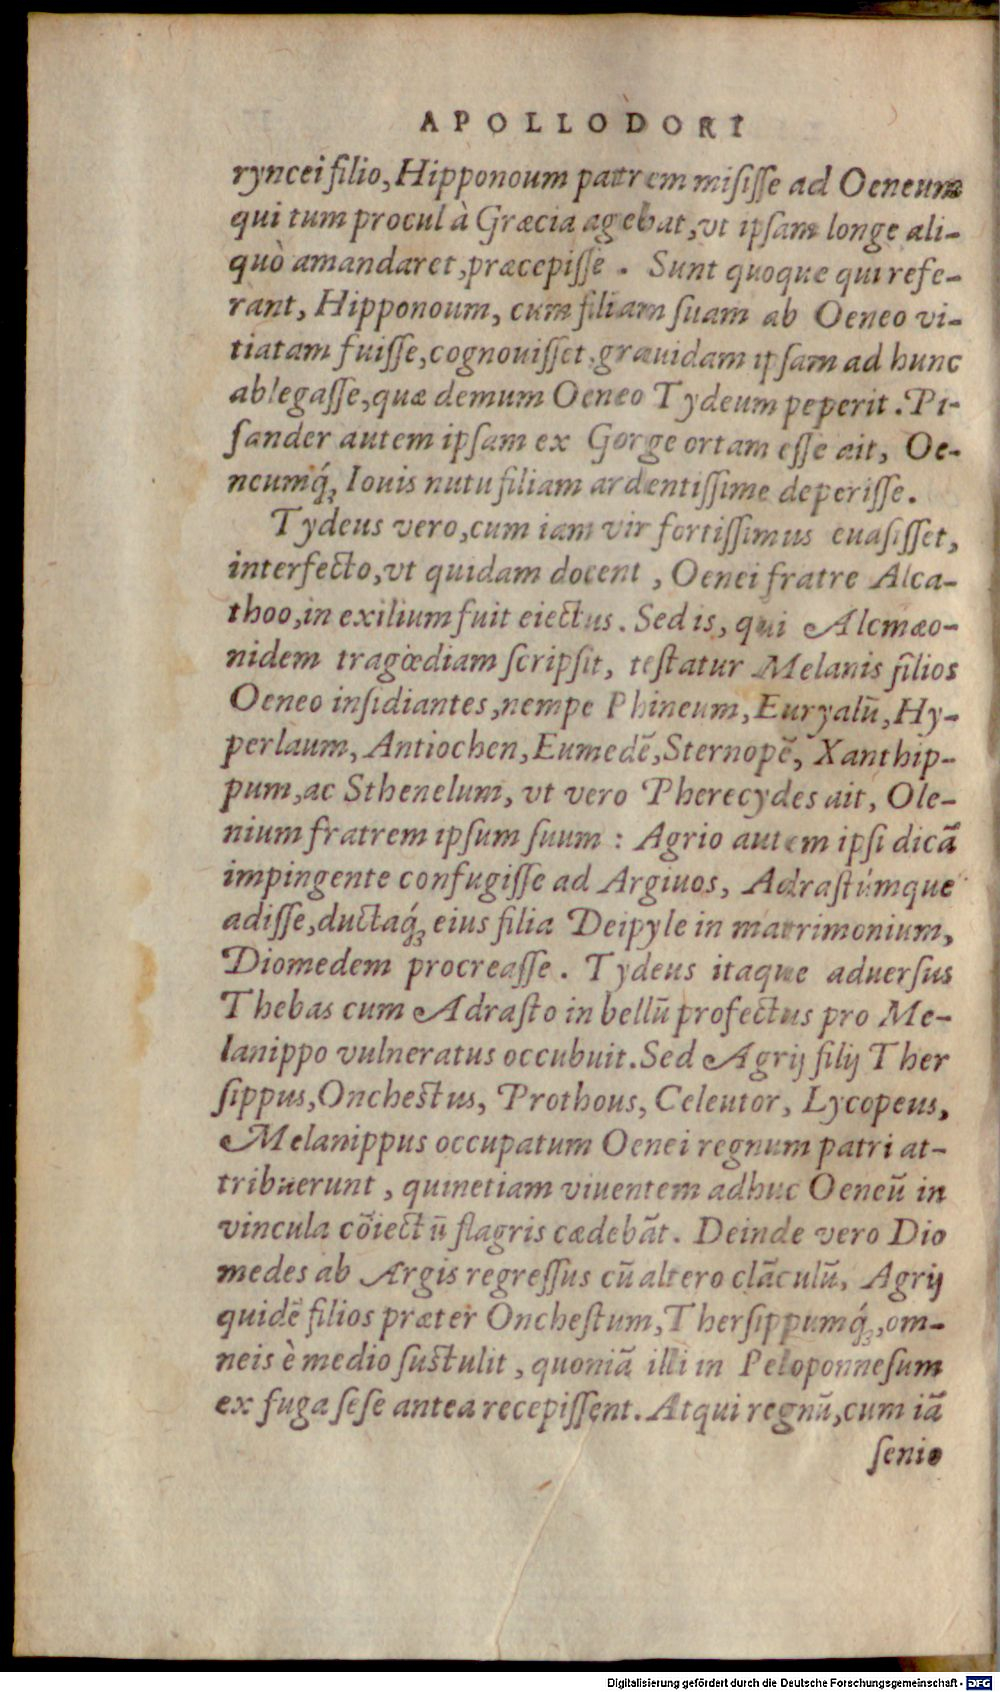 APOLLODORI
ryncei filio, Hipponoum patrem misiſſe ad Oeneum
qui tum procul à Græcia agebat, vt ipſam longe ali-
quò amandaret, præcepiſſe. Sunt quoque qui refe-
rant, Hipponoum, cum filiam ſuam ab Oeneo vi-
tiatam fuiſſe, cognouiſſet, grauidam ipſam ad hunc
ablegaſſe, quæ demum Oeneo Tydeum peperit. Pi-
ſander autem ipſam ex Gorge ortam eſſe ait, Oe-
neumq́ꝫ Iouis nutu filiam ardentiſſime deperiſſe.
Tydeus vero, cum iam vir fortiſſimus euaſiſſet,
interfecto, vt quidam docent, Oenei fratre Alca-
thoo, in exilium fuit eiectus. Sed is, qui Alcmæo-
nidem tragœdiam ſcripſit, teſtatur Melanis filios
Oeneo inſidiantes, nempe Phineum, Euryalũ, Hy-
perlaum, Antiochen, Eumedẽ, Sternopẽ, Xanthip-
pum, ac Sthenelum, vt vero Pherecydes ait, Ole-
nium fratrem ipſum ſuum: Agrio autem ipſi dicã
impingente confugiſſe ad Argiuos, Adraſtúmque
adiſſe, ductaq́ꝫ eius filia Deipyle in matrimonium,
Diomedem procreaſſe. Tydeus itaque aduerſus
Thebas cum Adraſto in bellũ profectus pro Me-
lanippo vulneratus occubuit. Sed Agrij filij Ther
ſippus, Oncheſtus, Prothous, Celeutor, Lycopeus,
Melanippus occupatum Oenei regnum patri at-
tribuerunt, quinetiam viuentem adhuc Oeneũ in
vincula cõiectũ flagris cædebãt. Deinde vero Dio
medes ab Argis regreſſus cũ altero clãculũ, Agrij
quidẽ filios præter Oncheſtum, Therſippumq́ꝫ, om-
neis è medio ſuſtulit, quoniã illi in Peloponneſum
ex fuga ſeſe antea recepiſſent. Atqui regnũ, cum iã
ſenio
Digitalisierung gefördert durch die Deutsche Forschungsgemeinschaft - DFG